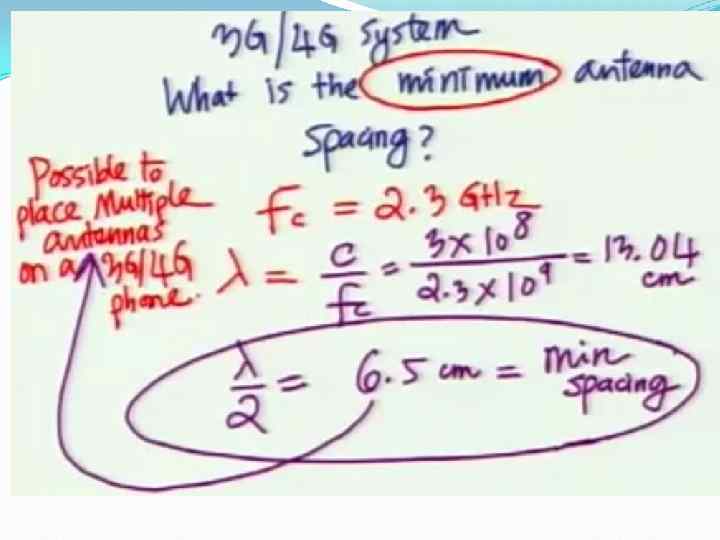 3G/4G System
What is the minimum antenna
Spacing?
Possible to
place Multiple
antennas
on a 3G/4G
phone.
fc = 2.3 GHz
λ = c/fc = 3×10^8/2.3×10^9 = 13.04 cm
λ/2 = 6.5 cm = min spacing